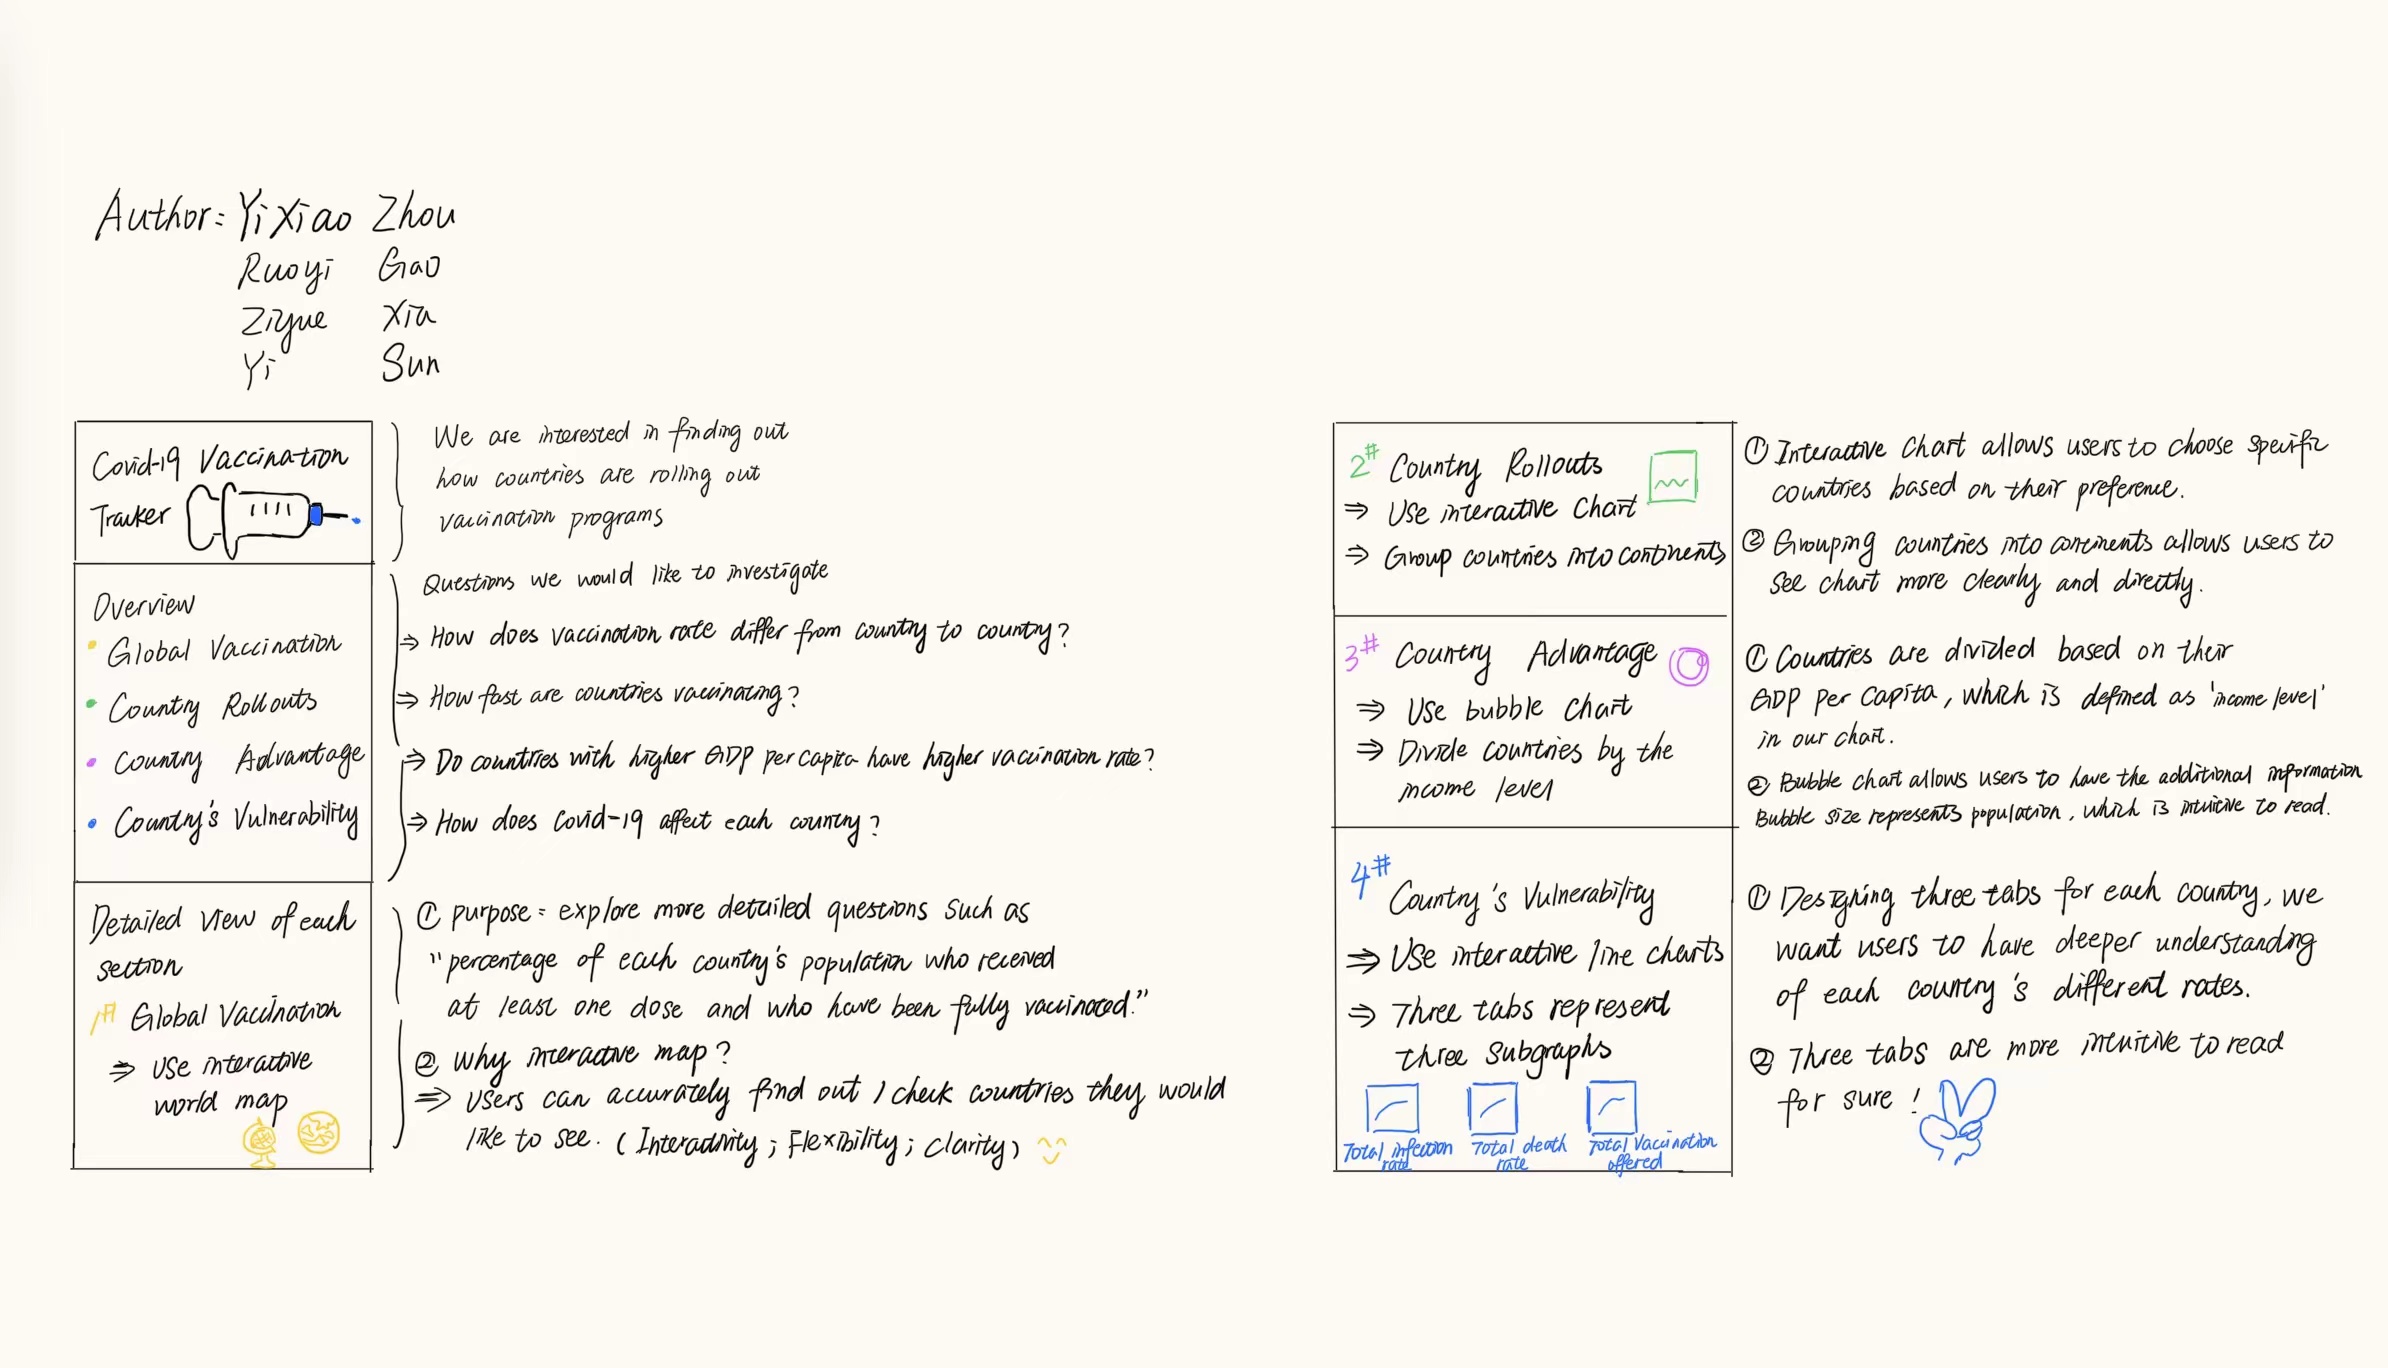 Author: Yixiao Zhou
Ruoyi Gao
Ziyue Xia
Yi Sun
Covid-19 Vaccination
Tracker
We are interested in finding out
how countries are rolling out
vaccination programs
Overview
• Global Vaccination
• Country Rollouts
• Country Advantage
• Country's Vulnerability
Questions we would like to investigate
⇒ How does vaccination rate differ from country to country?
⇒ How fast are countries vaccinating?
⇒ Do countries with higher GDP per capita have higher vaccination rate?
⇒ How does Covid-19 affect each country?
Detailed view of each
section
1# Global Vaccination
⇒ Use interactive
world map
① purpose: explore more detailed questions such as
"percentage of each country's population who received
at least one dose and who have been fully vaccinated."
② Why interactive map?
⇒ Users can accurately find out / check countries they would
like to see. (Interactivity; Flexibility; Clarity)
2# Country Rollouts
⇒ Use interactive Chart
⇒ Group countries into continents
① Interactive Chart allows users to choose specific
countries based on their preference.
② Grouping countries into continents allows users to
see chart more clearly and directly.
3# Country Advantage
⇒ Use bubble chart
⇒ Divide countries by the
income level
① Countries are divided based on their
GDP per capita, which is defined as 'income level'
in our chart.
② Bubble chart allows users to have the additional information
Bubble size represents population, which is intuitive to read.
4#
Country's Vulnerability
⇒ Use interactive line charts
⇒ Three tabs represent
three subgraphs
Total infection
rate
Total death
rate
Total Vaccination
offered
① Designing three tabs for each country, we
want users to have deeper understanding
of each country's different rates.
② Three tabs are more intuitive to read
for sure!